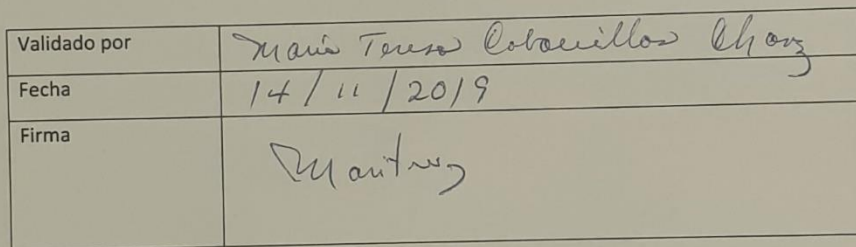 Validado por Maria Teresa Cobanillas Chavz
Fecha 14/11/2019
Firma Maritza